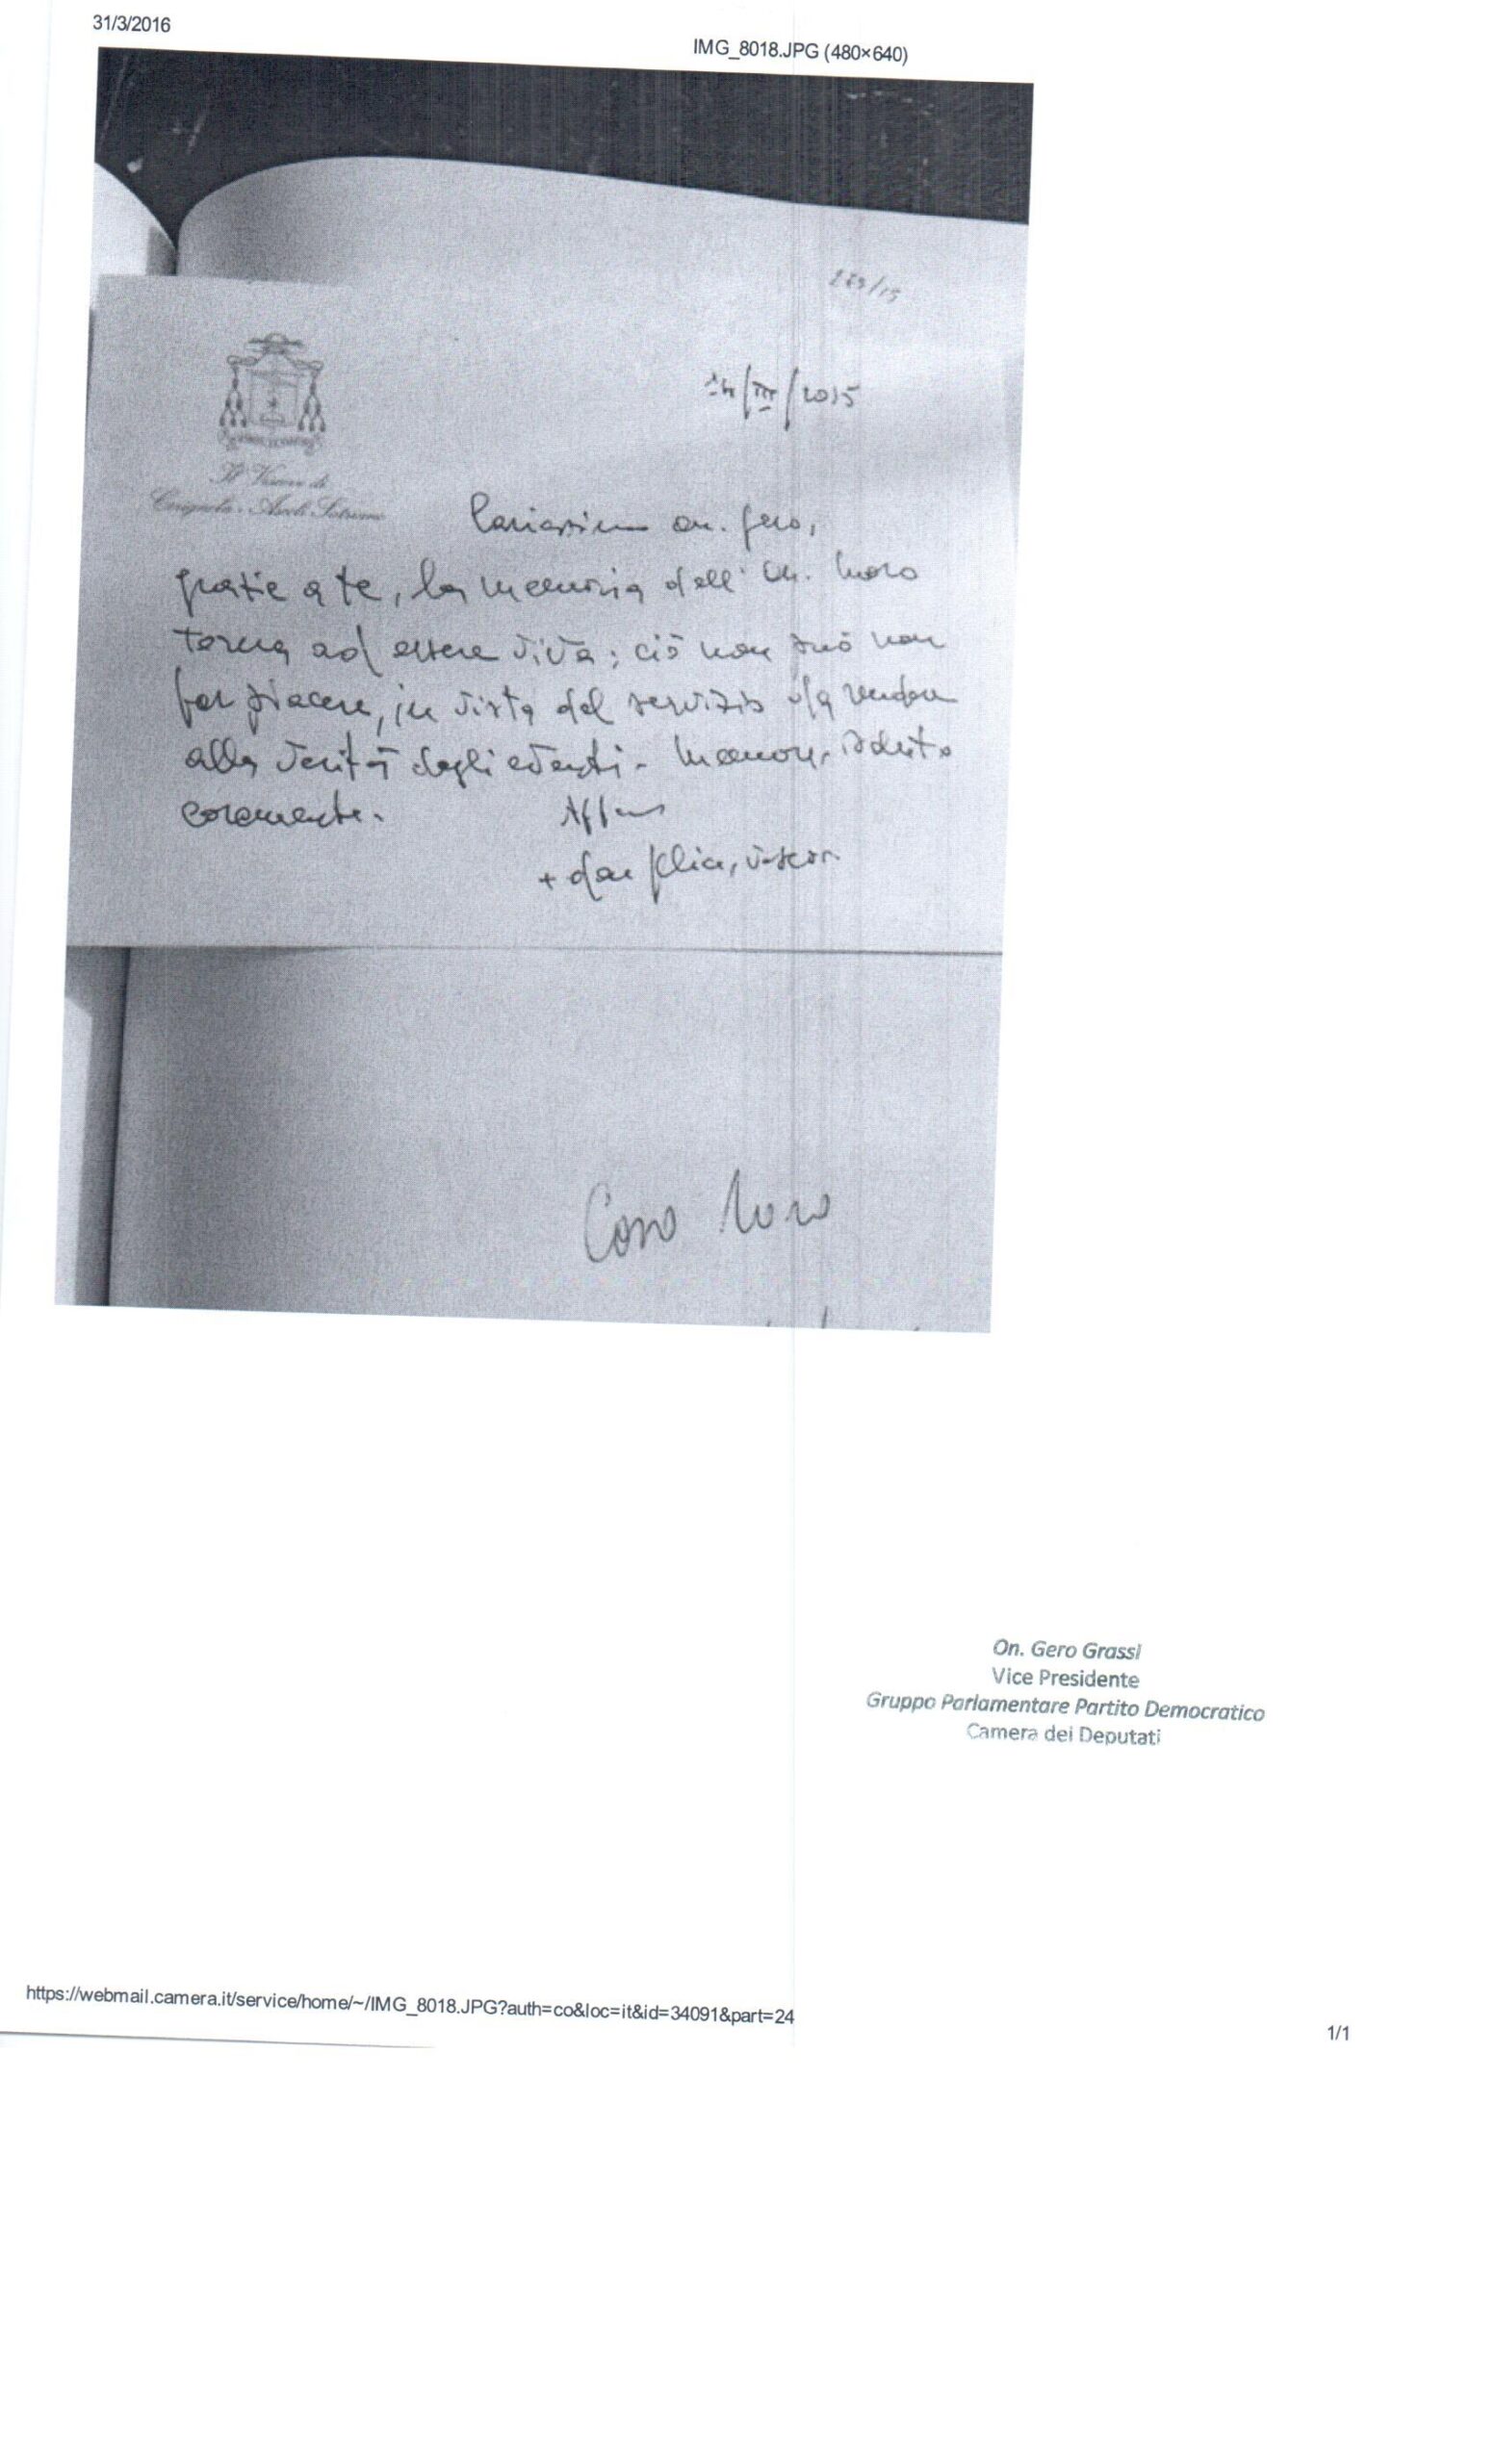 31/3/2016
IMG_8018.JPG (480×640)
/15
/III/2015
Il Vescovo di
Cerignola - Ascoli Satriano
Carissimo on. Gero,
grazie a te, la memoria dell'On. Moro
torna ad essere viva; ciò non può non
far piacere, in vista del servizio da rendere
alla verità degli eventi.
Aff.mo
+ don Felice, vescovo
Caro Moro
On. Gero Grassi
Vice Presidente
Gruppo Parlamentare Partito Democratico
Camera dei Deputati
https://webmail.camera.it/service/home/~/IMG_8018.JPG?auth=co&loc=it&id=34091&part=24
1/1